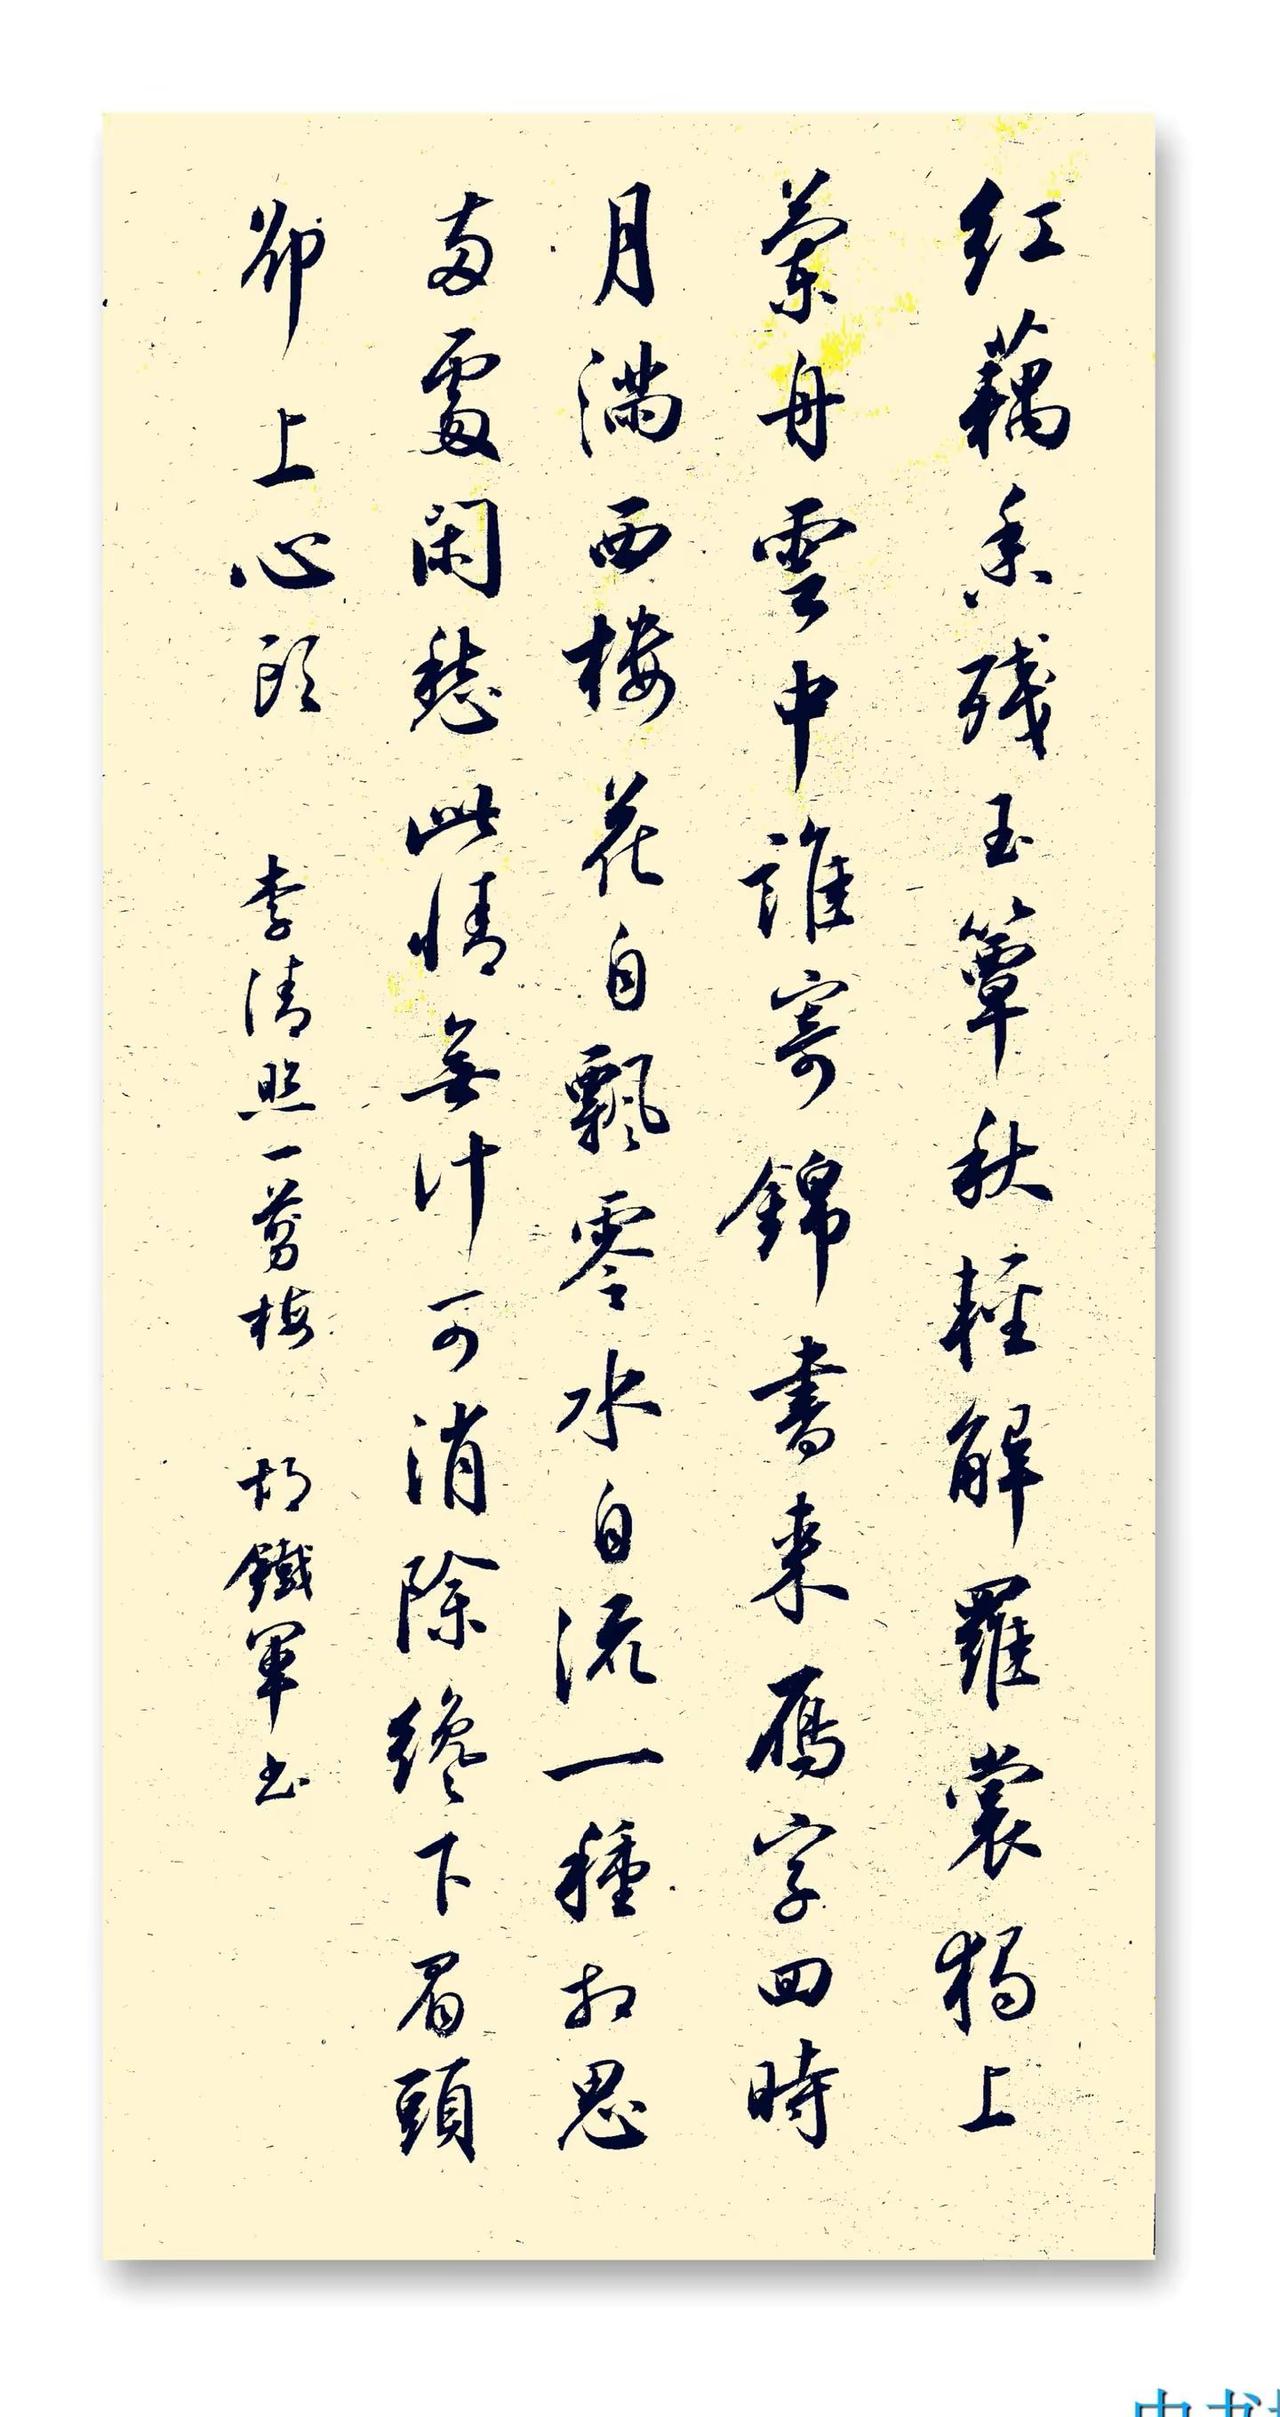 红藕香残玉簟秋輕解羅裳独上
蘭舟雲中誰寄錦書来雁字回時
月满西楼花自飄零水自流一種相思
两處闲愁此情無计可消除纔下眉頭
卻上心頭
李清照一剪梅 胡鐵軍书
中书